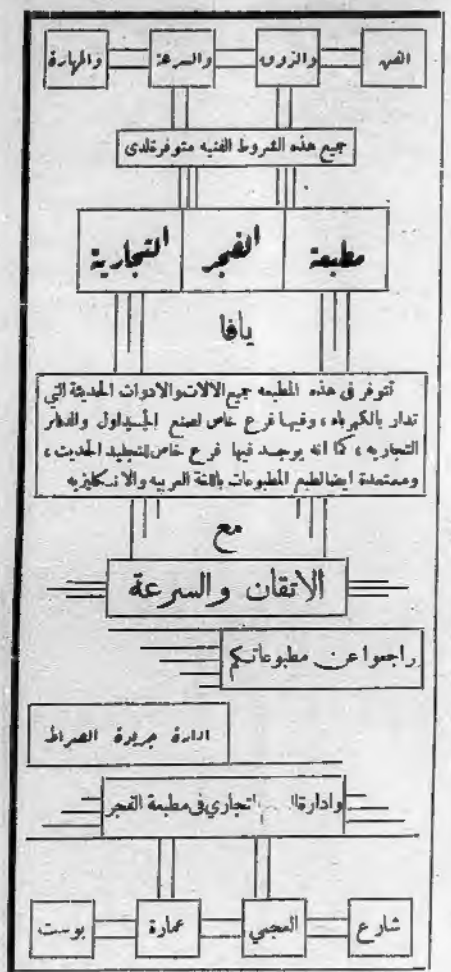 الفن والذوق والسرعة والمهارة
جميع هذه الشروط الفنيه متوفرةلدى
مطبعة الفجر التجارية
يافا
تتوفر في هذه المطبعه جميع الالات والادوات الحديثة التي
تدار بالكهرباء ، وفيها فرع خاص لصنع الجداول والدفاتر
التجاريه ، كما انه يوجد فيها فرع خاص للتجليد الحديث ،
ومستعدة ايضا لطبع المطبوعات باللغة العربيه والانكليزيه
مع
الاتقان والسرعة
راجعوا عن مطبوعاتكم
ادارة جريدة الصراط
وادارة التجاري في مطبعة الفجر
شارع العجمي عمارة بوست